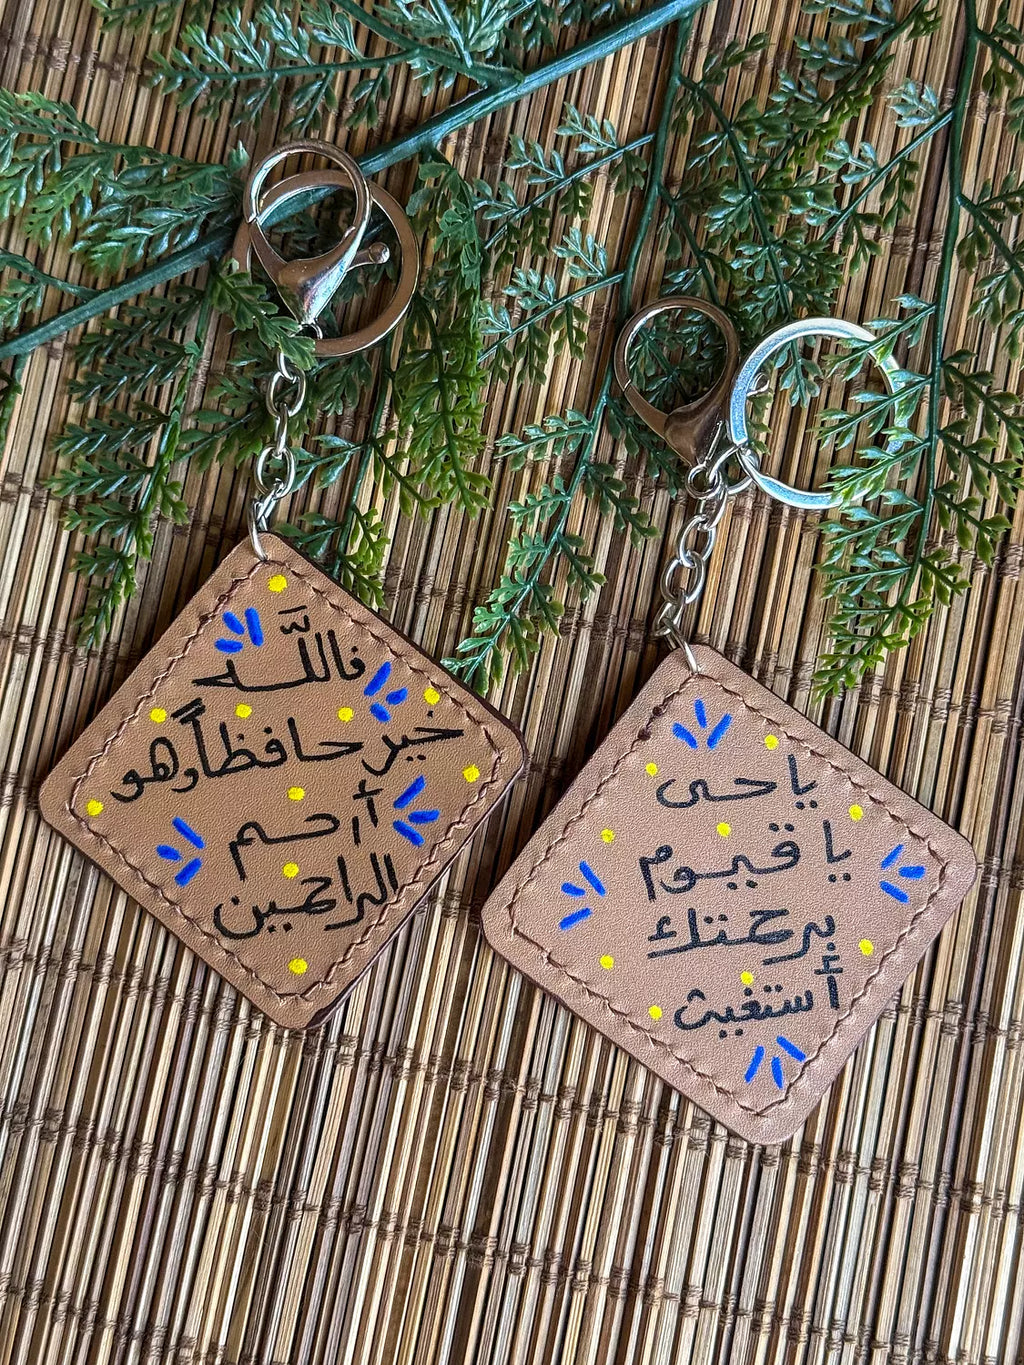 فاللَّه
خير حافظاً وهو
أرحم
الراحمين
ياحى
يا قيوم
برحمتك
أستغيث